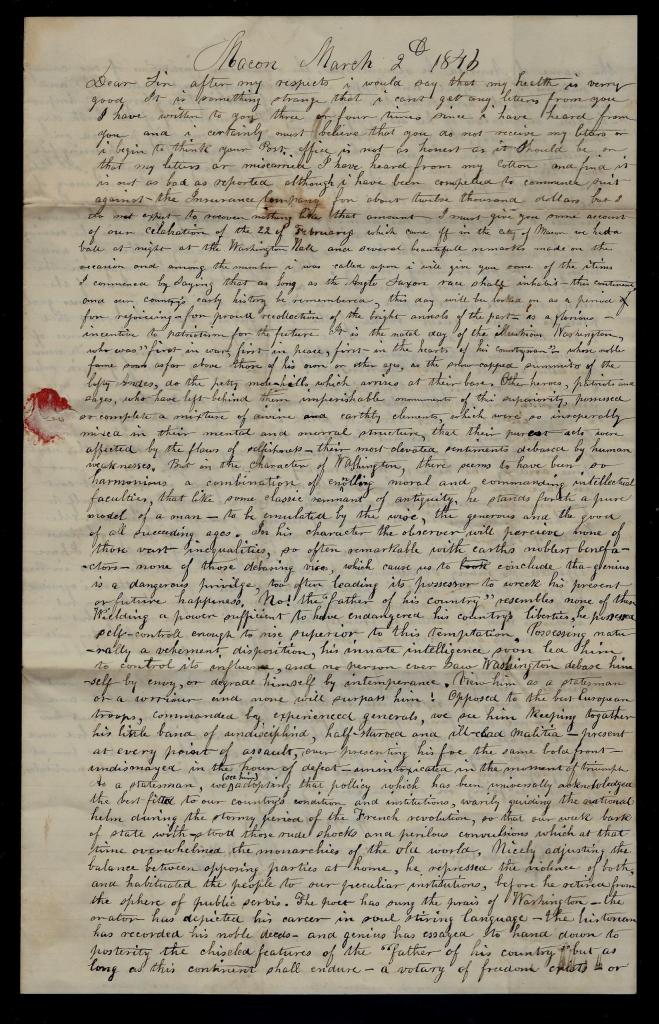 Macon March 2d 1846
Dear Sir after my respects i would say that my health is verry
good It is something strange that i cant get any letters from you
I have written to you three or four times since i have heard from
you and i certainly must believe that you do not receive my letters or
i begin to think your Post office is not as honest as it should be or
that my letters ar miscarried I have heard from my Cotton and find it
is not as bad as reported although i have been compelled to commence suit
against the Insurance Company for about twelve thousand dollars but I
do not expect to recover nothing like that amount I must give you some account
of our Celabration of the 22 of February which came off in the city of Macon we had a
ball at night at the Washington Hall and several beautifull remarks made on the
occasion and among the number i was called upon i will give you some of the items
I commenced by saying that as long as the Anglo Saxon race shall inhabit this continent
and our country's early history be remembered, this day will be looked on as a period
for rejoicing for proud recollection of the bright annals of the past as a glorious
incentive to patriotism for the future It is the natal day of the illustrious Washington,
who was "first in war, first in peace, first in the hearts of his countrymen" whose noble
fame soars as far above those of his own or other ages, as the snow capped summits of the
lofty Andes, do the petty mole-hills which arrises at their base. Other heroes, patriots and
sages, who have left behind them imperishable monuments of thi superiority, possessed
or complete a mixture of divine and earthly elements, which were so inseperably
mixed in their mental and morral structure, that their purest acts were
affected by the flaws of selfishness their most elevated sentiments debased by human
weaknesses. But in the Character of Washington, there seems to have been so
harmonious a combination of enobling moral and commanding intellectual
faculties, that like some classic remnant of antiquity, he stands forth a pure
model of a man – to be emulated by the wise, the generous and the good
of all succeeding ages. In his character the observer will percieve none of
those vast inequalities, so often remarkable with earths noblest benefa-
-ctors – none of those debasing vice, which cause us to conclude tha genius
is a dangerous privilge, too often leading its possessor to wreck his present
or future happiness. No! the "father of his country" resembles none of these
Wielding a power sufficient to have endangered his country's liberties, he possessed
self-controll enough to rise superior to this temptation. Possessing natu-
-rally a vehement disposition, his innate intelligence soon led him
to control its influence, and no person ever saw Washington debase him
-self by envy, or degrade himself by intemperance. View him as a statesman
or a worriour and none will surpass him! Opposed to the best European
troops, commanded by experienced generals, we see him keeping together
his little band of undisciplind, half-starved and ill-clad malitia – present
at every point of assault, ever presenting his foe the same bold front –
undismayed in the hour of defeat – unintoxicated in the moment of triumph
As a statesman, we (see him) adopting that pollicy which has been universally acknowledged
the best fitted to our country's condition and institutions, warily guiding the national
helm during the stormy period of the French revolution, so that our weak bark
of state with-stood those rude shocks and perilous convulsions which at that
time overwhelmed the monarchies of the old world. Nicely adjusting the
balance between opposing parties at home, he repressed the violence of both,
and habituated the people to our preculiar institutions, before he retired from
the sphere of public servis. The poet has sung the prais of Washington – the
orator has depicted his career in soul stiring language – the historian
has recorded his noble deeds – and genius has essayed to hand down to
posterity the chiseled features of the "father of his country" but as
long as this continent shall endure – a votary of freedom exists – or